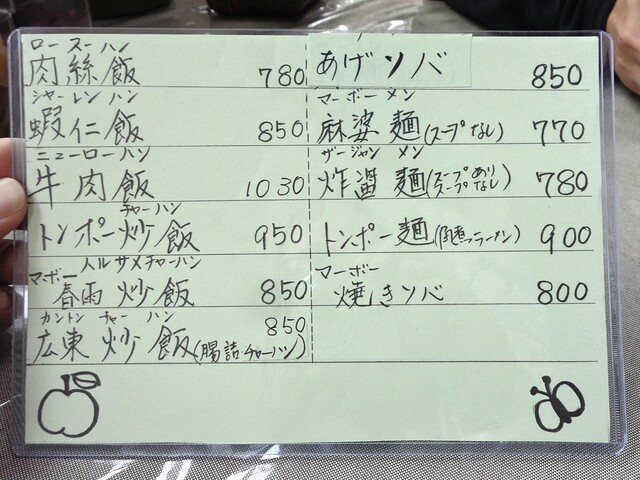 ロースーハン
肉絲飯 780
シャーレンハン
蝦仁飯 850
ニューローハン
牛肉飯 1030
チャーハン
トンポー炒飯 950
マーボー ハルサメチャーハン
春雨炒飯 850
カントン チャーハン
広東炒飯(腸詰チャーハン) 850
あげソバ 850
マーボーメン
麻婆麺(スープなし) 770
ザージャンメン
炸醤麺(スープあり スープなし) 780
トンポー麺(角煮ラーメン) 900
マーボー
焼きソバ 800